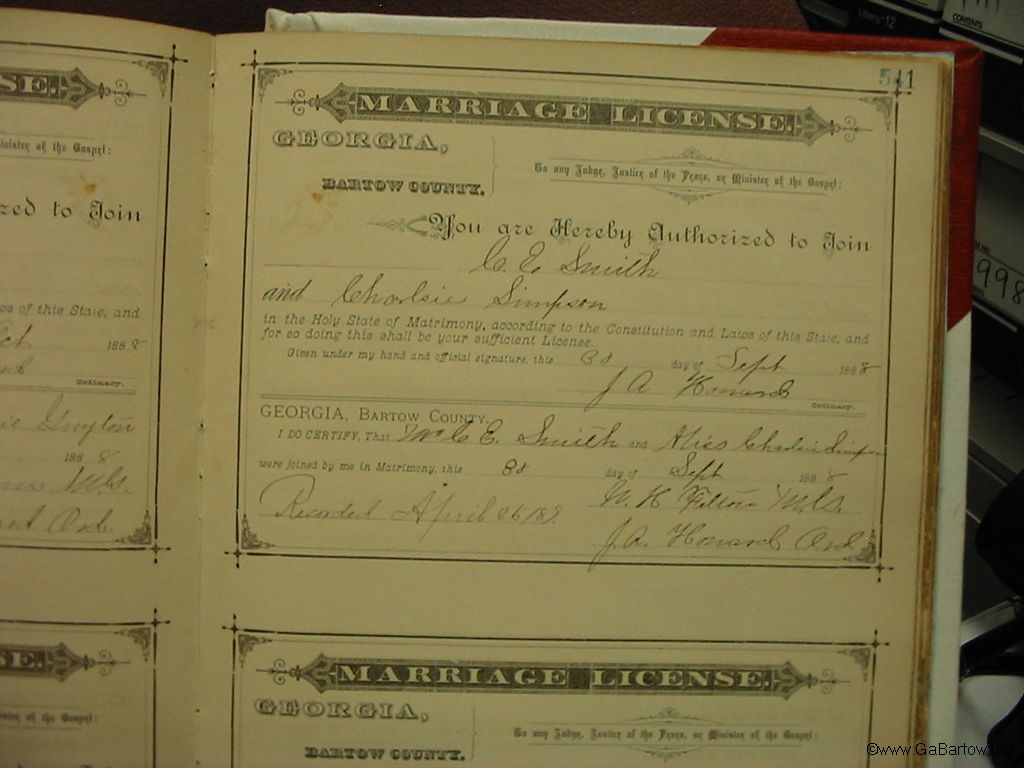 Liberty 12
CONTENTS
541
998
SE.
Minister of the Gospel:
zed to Join
ws of this State, and
188 8
Ordinary.
Guyton
188 8
M.G.
Ord.
MARRIAGE LICENSE.
GEORGIA,
BARTOW COUNTY.
To any Judge, Justice of the Peace, or Minister of the Gospel:
You are Hereby Authorized to Join
C. E. Smith
and Charlsie Simpson
in the Holy State of Matrimony, according to the Constitution and Laws of this State, and
for so doing this shall be your sufficient License.
Given under my hand and official signature, this day of Sept 188 8
J A Howard
Ordinary.
GEORGIA, BARTOW COUNTY.
I DO CERTIFY, That Mr C E. Smith and Miss Charlsie Simpson
were joined by me in Matrimony, this day of Sept 188 8
W. H Felton M.G.
Recorded April 189.
J. A. Howard Ord
SE.
Minister of the Gospel:
MARRIAGE LICENSE.
GEORGIA,
BARTOW COUNTY.
To any Judge, Justice of the Peace, or Minister of the Gospel:
©www.GaBartow.org